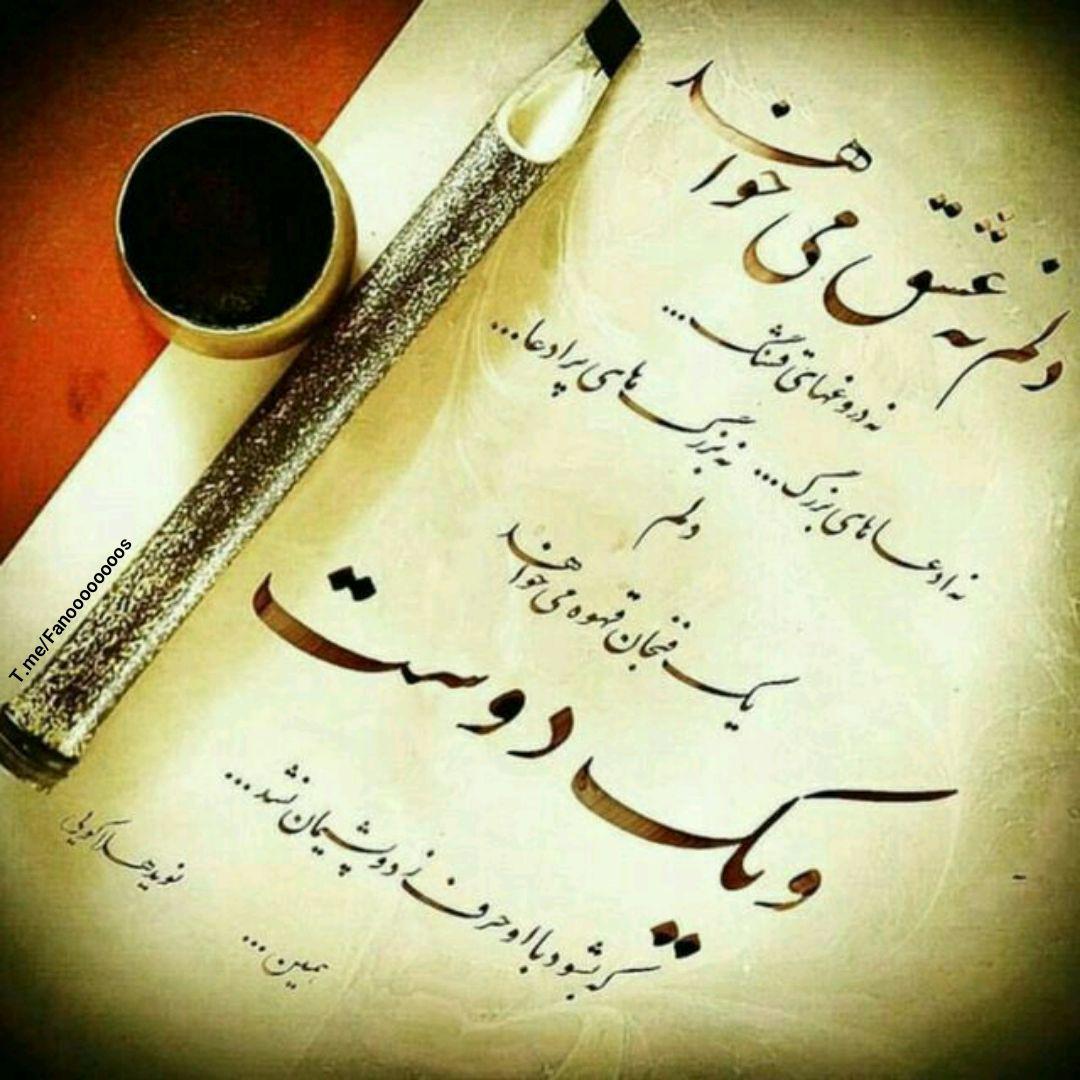 دلم نه عشق می خواهد
نه دروغهای قشنگ...
نه ادعاهای بزرگ... نه بزرگ های پر ادعا...
دلم
یک فنجان قهوه می خواهد
و یک دوست
که بشود با او حرف زد و پشیمان نشد...
همین...
نوید هلاکویی
T.me/Fanoooooooos